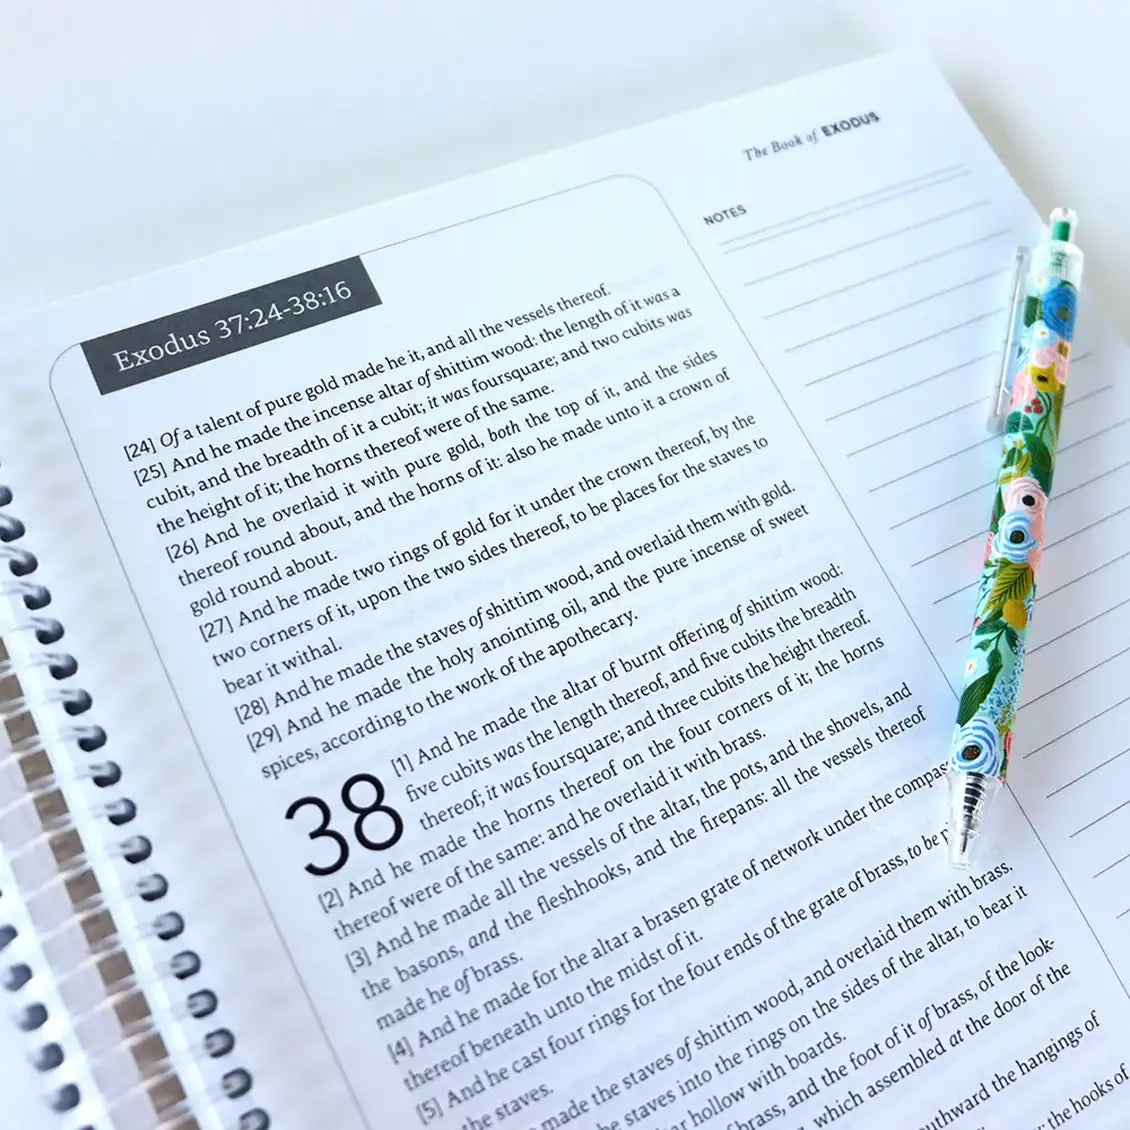 The Book of EXODUS
NOTES
Exodus 37:24-38:16
[24] Of a talent of pure gold made he it, and all the vessels thereof.
[25] And he made the incense altar of shittim wood: the length of it was a
cubit, and the breadth of it a cubit; it was foursquare; and two cubits was
the height of it; the horns thereof were of the same.
[26] And he overlaid it with pure gold, both the top of it, and the sides
thereof round about, and the horns of it: also he made unto it a crown of
gold round about.
[27] And he made two rings of gold for it under the crown thereof, by the
two corners of it, upon the two sides thereof, to be places for the staves to
bear it withal.
[28] And he made the staves of shittim wood, and overlaid them with gold.
[29] And he made the holy anointing oil, and the pure incense of sweet
spices, according to the work of the apothecary.
38
[1] And he made the altar of burnt offering of shittim wood:
five cubits was the length thereof, and five cubits the breadth
thereof; it was foursquare; and three cubits the height thereof.
[2] And he made the horns thereof on the four corners of it; the horns
thereof were of the same: and he overlaid it with brass.
[3] And he made all the vessels of the altar, the pots, and the shovels, and
the basons, and the fleshhooks, and the firepans: all the vessels thereof
made he of brass.
[4] And he made for the altar a brasen grate of network under the compass
thereof beneath unto the midst of it.
[5] And he cast four rings for the four ends of the grate of brass, to be
the staves.
made the staves of shittim wood, and overlaid them with brass.
the staves into the rings on the sides of the altar, to bear it
hollow with boards.
brass, and the foot of it of brass, of the look-
which assembled at the door of the
southward the hangings of
the hooks of